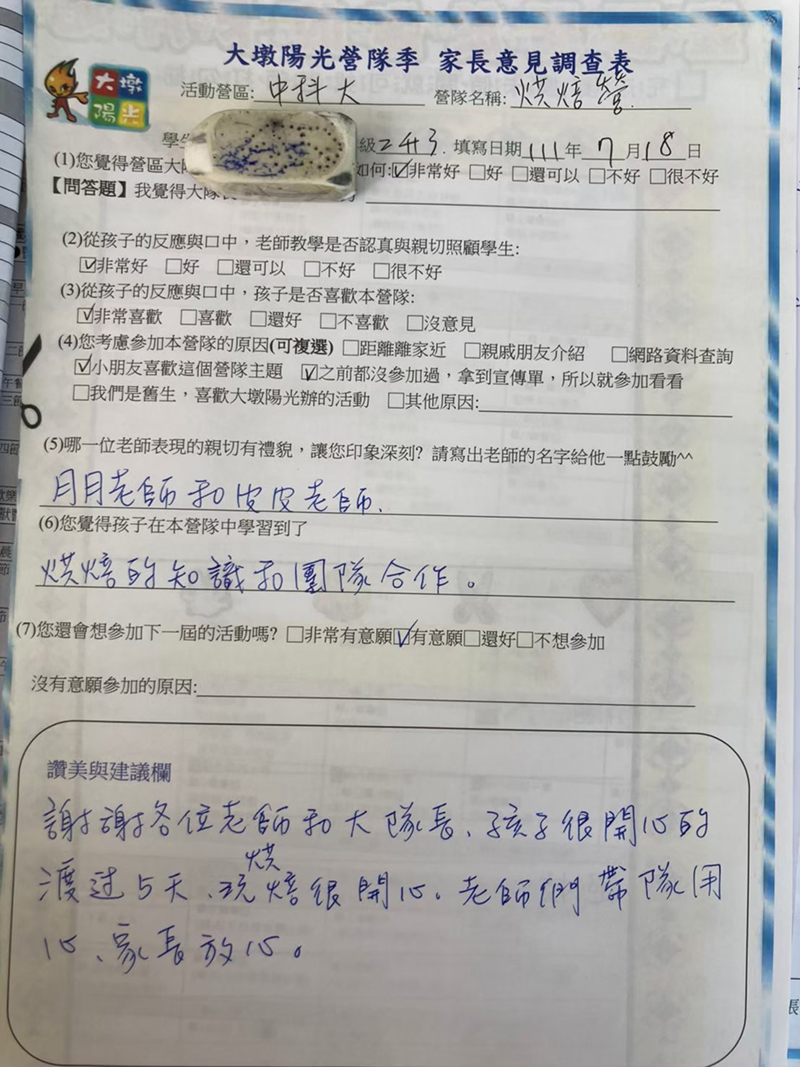 大墩陽光營隊季 家長意見調查表
大墩
陽光
活動營區: 中科大 營隊名稱: 烘焙營
學生 級 填寫日期 111 年 7 月 18 日
(1)您覺得營區大隊 如何:☑非常好 □好 □還可以 □不好 □很不好
【問答題】我覺得大隊長
(2)從孩子的反應與口中，老師教學是否認真與親切照顧學生:
☑非常好 □好 □還可以 □不好 □很不好
(3)從孩子的反應與口中，孩子是否喜歡本營隊:
☑非常喜歡 □喜歡 □還好 □不喜歡 □沒意見
(4)您考慮參加本營隊的原因(可複選) □距離離家近 □親戚朋友介紹 □網路資料查詢
☑小朋友喜歡這個營隊主題 ☑之前都沒參加過，拿到宣傳單，所以就參加看看
□我們是舊生，喜歡大墩陽光辦的活動 □其他原因:
(5)哪一位老師表現的親切有禮貌，讓您印象深刻? 請寫出老師的名字給他一點鼓勵^^
月月老師和皮皮老師.
(6)您覺得孩子在本營隊中學習到了
烘焙的知識和團隊合作。
(7)您還會想參加下一屆的活動嗎? □非常有意願☑有意願□還好□不想參加
沒有意願參加的原因:
讚美與建議欄
謝謝各位老師和大隊長、孩子很開心的
渡过5天、玩烘焙很開心。老師們帶隊用
心、家長放心。